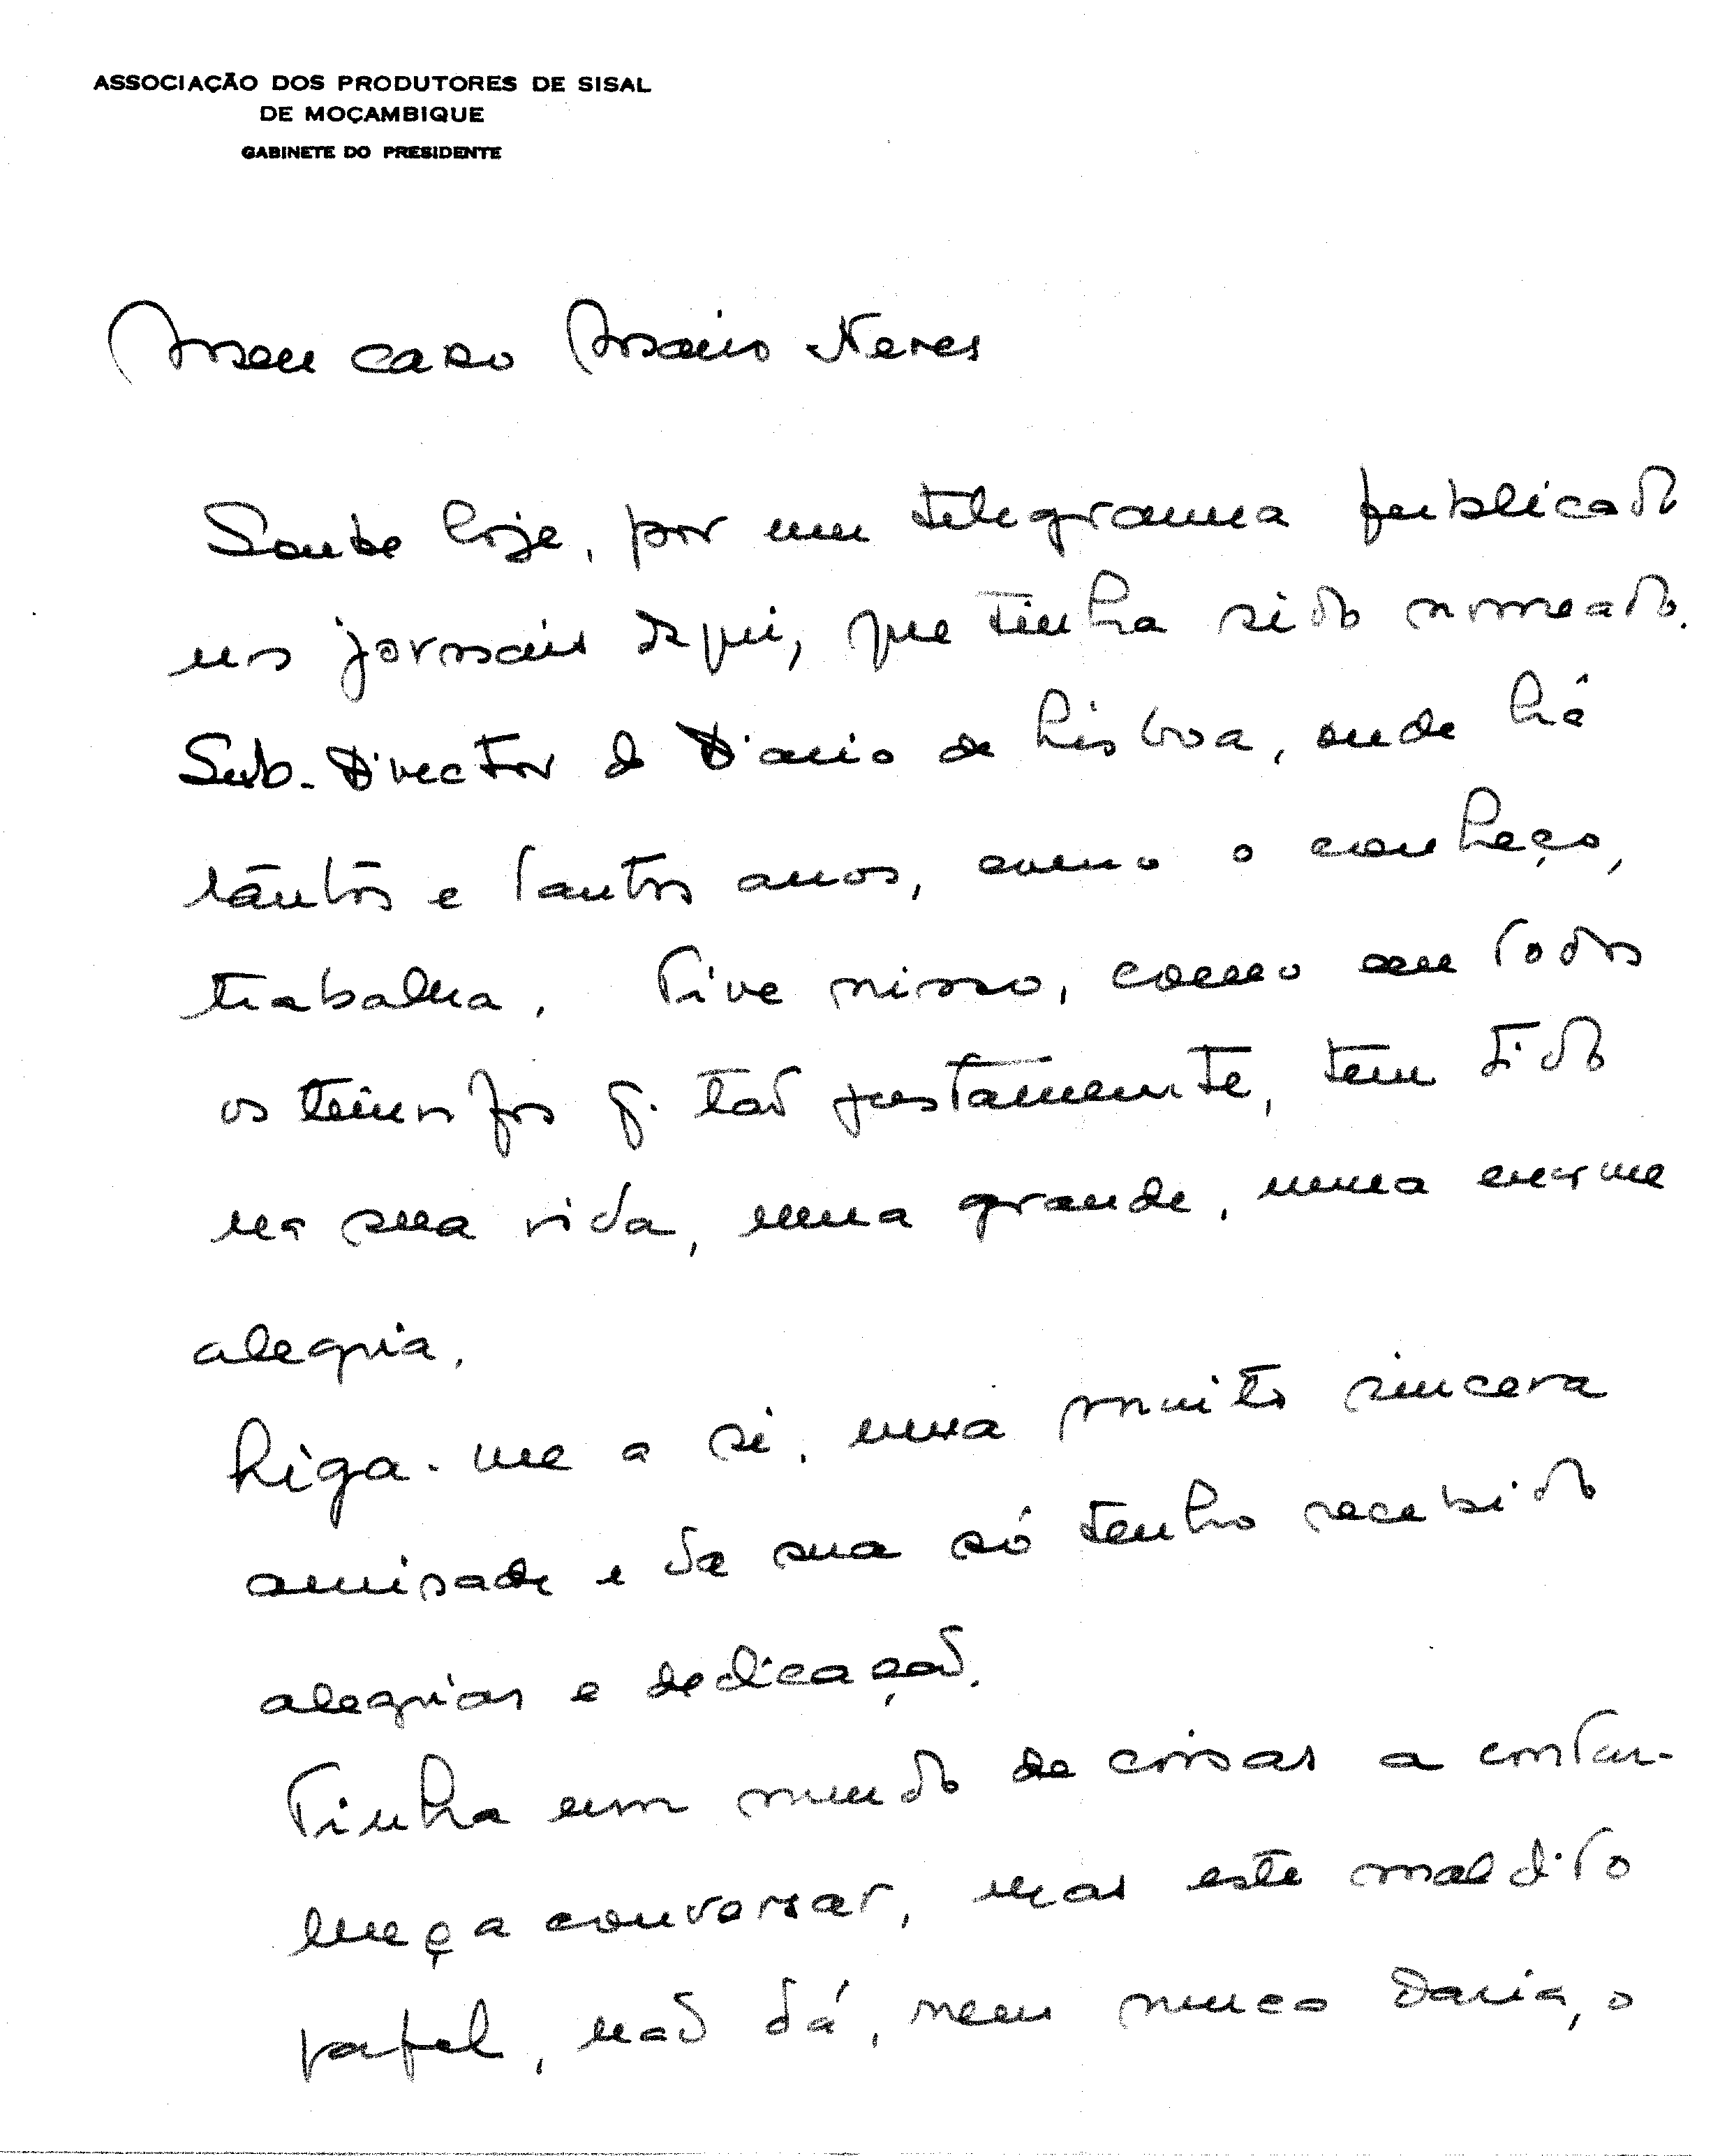 ASSOCIAÇÃO DOS PRODUTORES DE SISAL
DE MOÇAMBIQUE
GABINETE DO PRESIDENTE
Meu caro Mário Neves
Soube hoje, por um telegrama publicado
nos jornais daqui, que tinha sido nomeado.
Sub-Director do Diario de Lisboa, onde há
tãntos e tantos anos, como o conheço,
trabalha. Tive nisso, como em todos
os triunfos q. taõ justamente, tem tido
na sua vida, uma grande, uma enorme
alegria.
Liga-me a si, uma muito sincera
amisade e da sua só tenho recebido
alegrias e dedicaçaõ.
Tinha um mundo de coisas a contar-
lhe a conversar, mas este maldito
papel, naõ dá, nem nunca daria, o